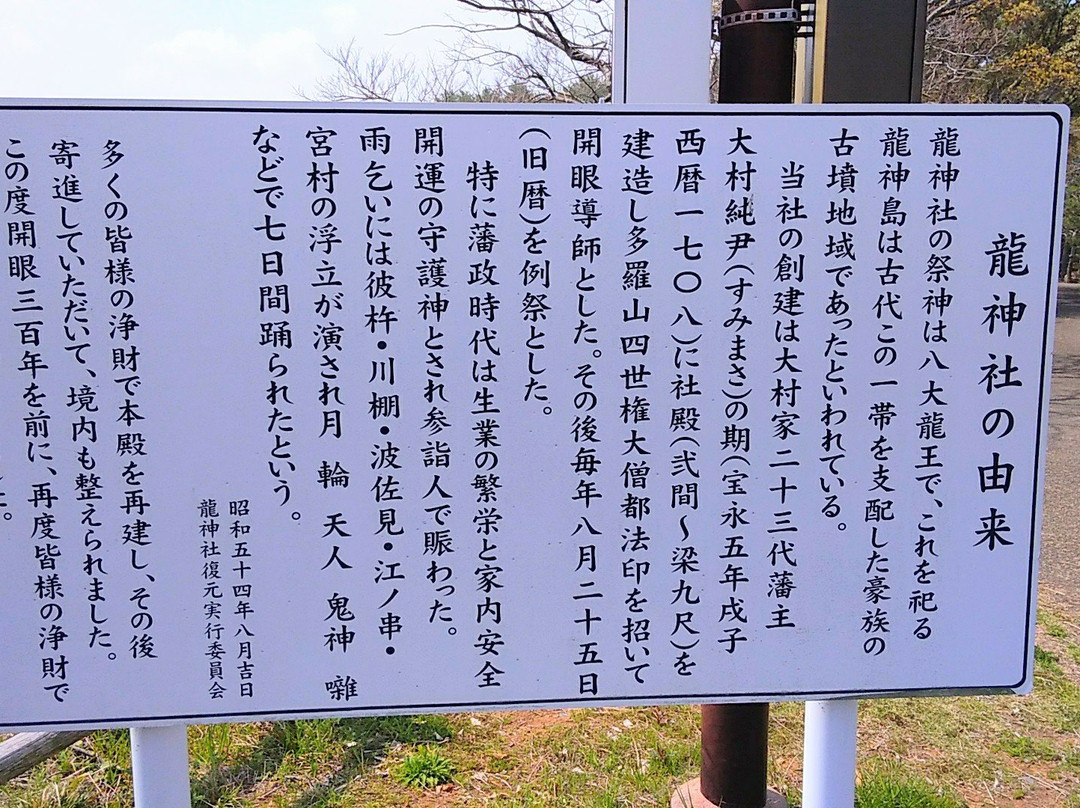 龍神社の由来
龍神社の祭神は八大龍王で、これを祀る
龍神島は古代この一帯を支配した豪族の
古墳地域であったといわれている。
当社の創建は大村家二十三代藩主
大村純尹(すみまさ)の期(宝永五年戌子
西暦一七〇八)に社殿(弐間〜梁九尺)を
建造し多羅山四世権大僧都法印を招いて
開眼導師とした。その後毎年八月二十五日
(旧暦)を例祭とした。
特に藩政時代は生業の繁栄と家内安全
開運の守護神とされ参詣人で賑わった。
雨乞いには彼杵・川棚・波佐見・江ノ串・
宮村の浮立が演され月 輪 天人 鬼神 囃
などで七日間踊られたという。
昭和五十四年八月吉日
龍神社復元実行委員会
多くの皆様の浄財で本殿を再建し、その後
寄進していただいて、境内も整えられました。
この度開眼三百年を前に、再度皆様の浄財で